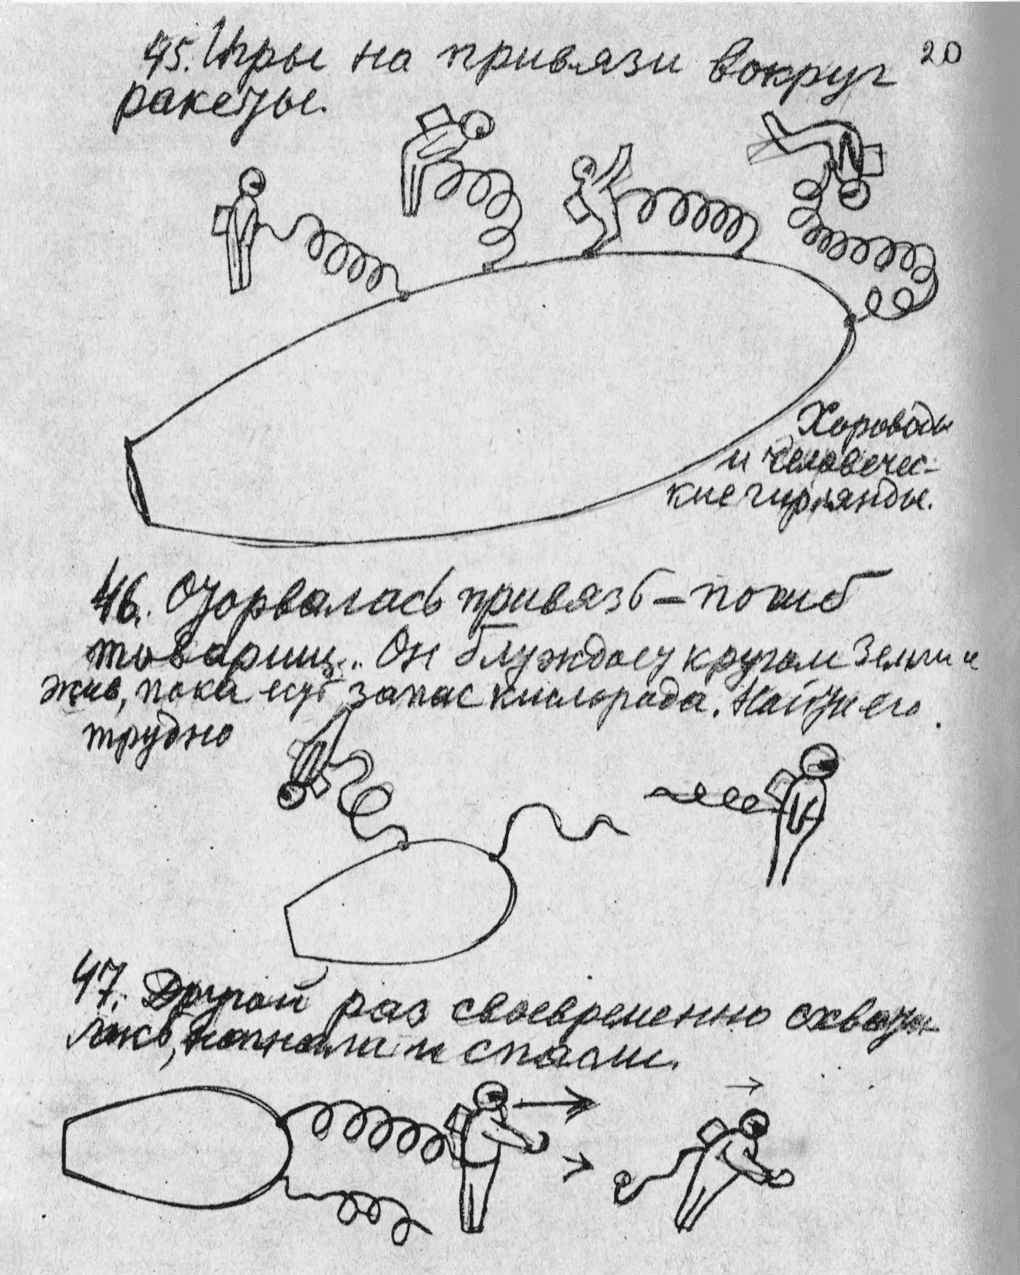 20
45. Игры на привязи вокруг
ракеты.
Хороводы
и человечес-
кие гирлянды.
46. Оторвалась привязь – погиб
товарищ... Он блуждает кругом Земли и
жив, пока есть запас кислорода. Найти его
трудно
47. Другой раз своевременно схвати-
лись, нагнали и спасли.